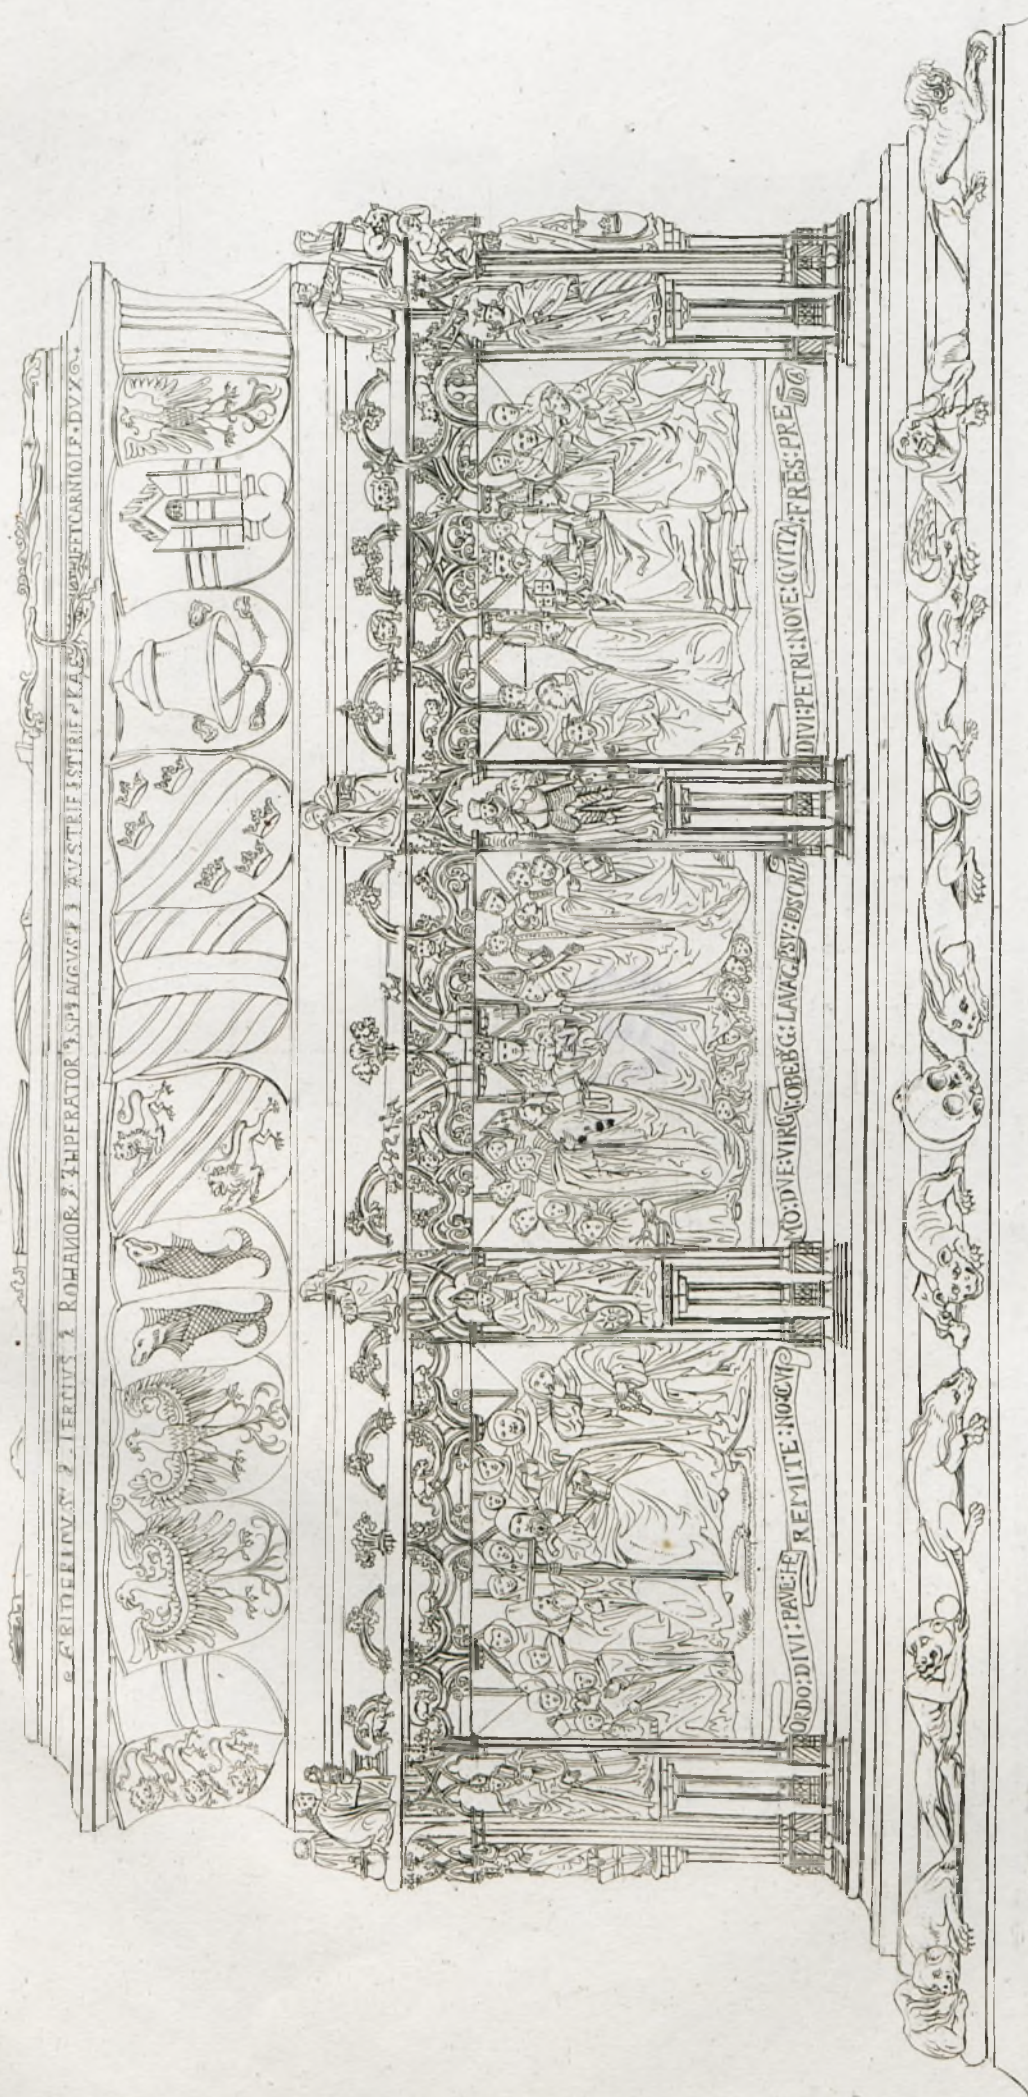 FRIDERICVS 2 TERCIVS 2 ROMANOR 2 IMPERATOR SP AVGVS AVSTRIE STIRIE KA ET CARNIOLE DVX
ORDO:DIVI:PAVL:HE REMITE:NO:CVI
TO:DVE:VIRG: OBEBG:LAVAC PSV:
DIVI:PETRI:NOVE:CVITA:FRES:PRE